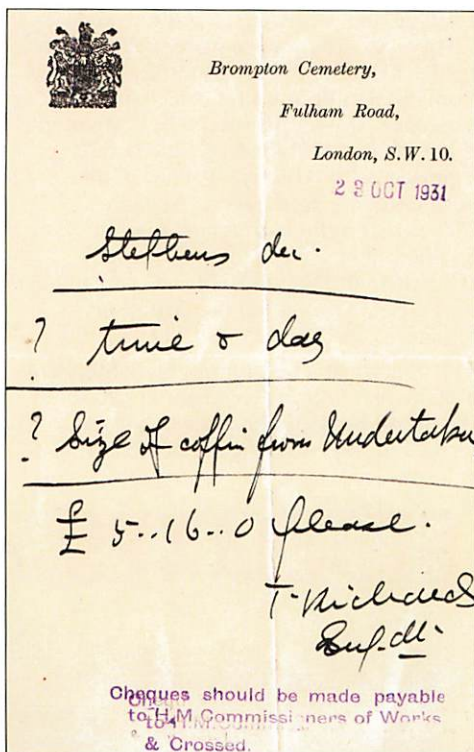 Brompton Cemetery,
Fulham Road,
London, S.W. 10.
OCT 1931
Stephens dec.
? time & day
? Size of coffin from Undertaker
£ 5..16..0 please.
T. Richards
Supdt.
Cheques should be made payable
to H.M. Commissioners of Works
& Crossed.